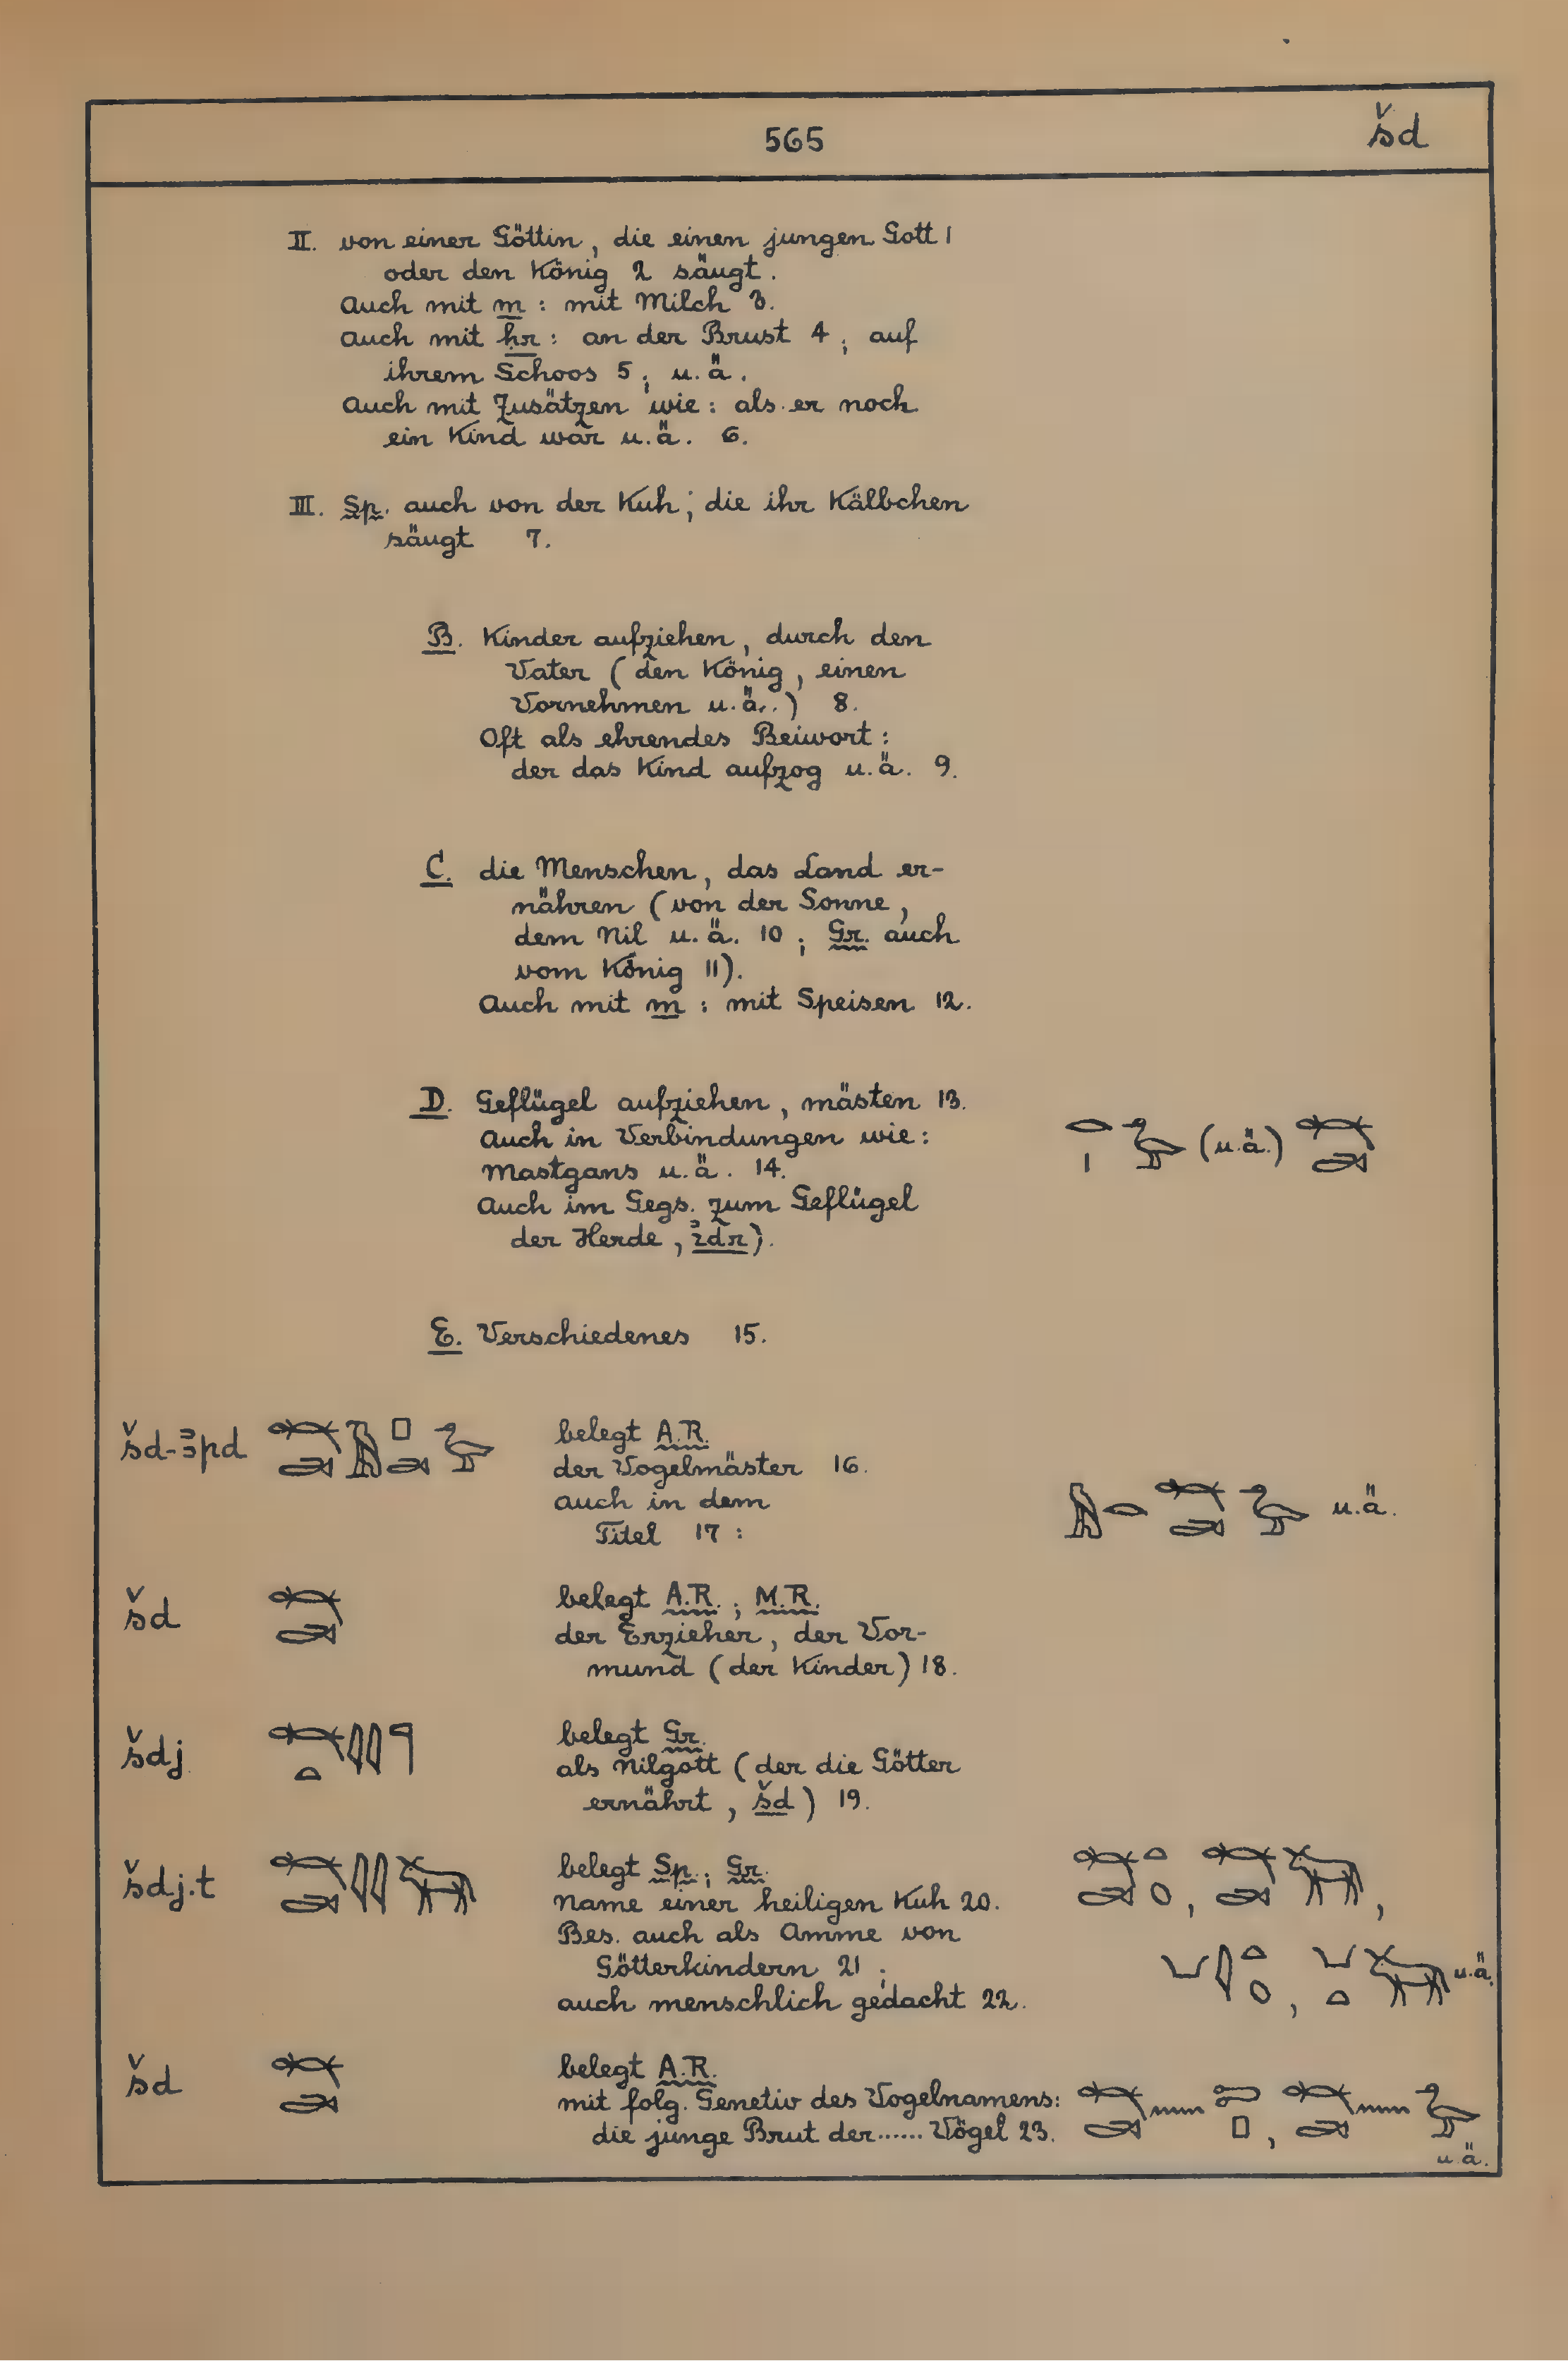 565
šd
II. von einer Göttin, die einen jungen Gott 1
oder den König 2 säugt.
Auch mit m : mit Milch 3.
Auch mit ḥr : an der Brust 4 ; auf
ihrem Schoos 5 ; u.ä.
Auch mit Zusätzen wie : als er noch
ein Kind war u.ä. 6.
III. Sp. auch von der Kuh, die ihr Kälbchen
säugt 7.
B. Kinder aufziehen, durch den
Vater (den König, einen
Vornehmen u.ä..) 8.
Oft als ehrendes Beiwort :
der das Kind aufzog u.ä. 9.
C. die Menschen, das Land er-
nähren (von der Sonne,
dem Nil u.ä. 10 ; Gr. auch
vom König 11).
Auch mit m : mit Speisen 12.
D. Geflügel aufziehen, mästen 13.
Auch in Verbindungen wie :
Mastgans u.ä. 14.
(u.ä.)
Auch im Gegs. zum Geflügel
der Herde, ꞽdr).
E. Verschiedenes 15.
šd-ꜣpd
belegt A.R.
der Vogelmäster 16.
auch in dem
Titel 17 :
u.ä.
šd
belegt A.R. ; M.R.
der Erzieher, der Vor-
mund (der Kinder) 18.
šdj
belegt Gr.
als Nilgott (der die Götter
ernährt, šd) 19.
šdj.t
belegt Sp. ; Gr.
Name einer heiligen Kuh 20.
Bes. auch als Amme von
Götterkindern 21 ;
auch menschlich gedacht 22.
u.ä.
šd
belegt A.R.
mit folg. Genetiv des Vogelnamens:
die junge Brut der...... Vögel 23.
u.ä.